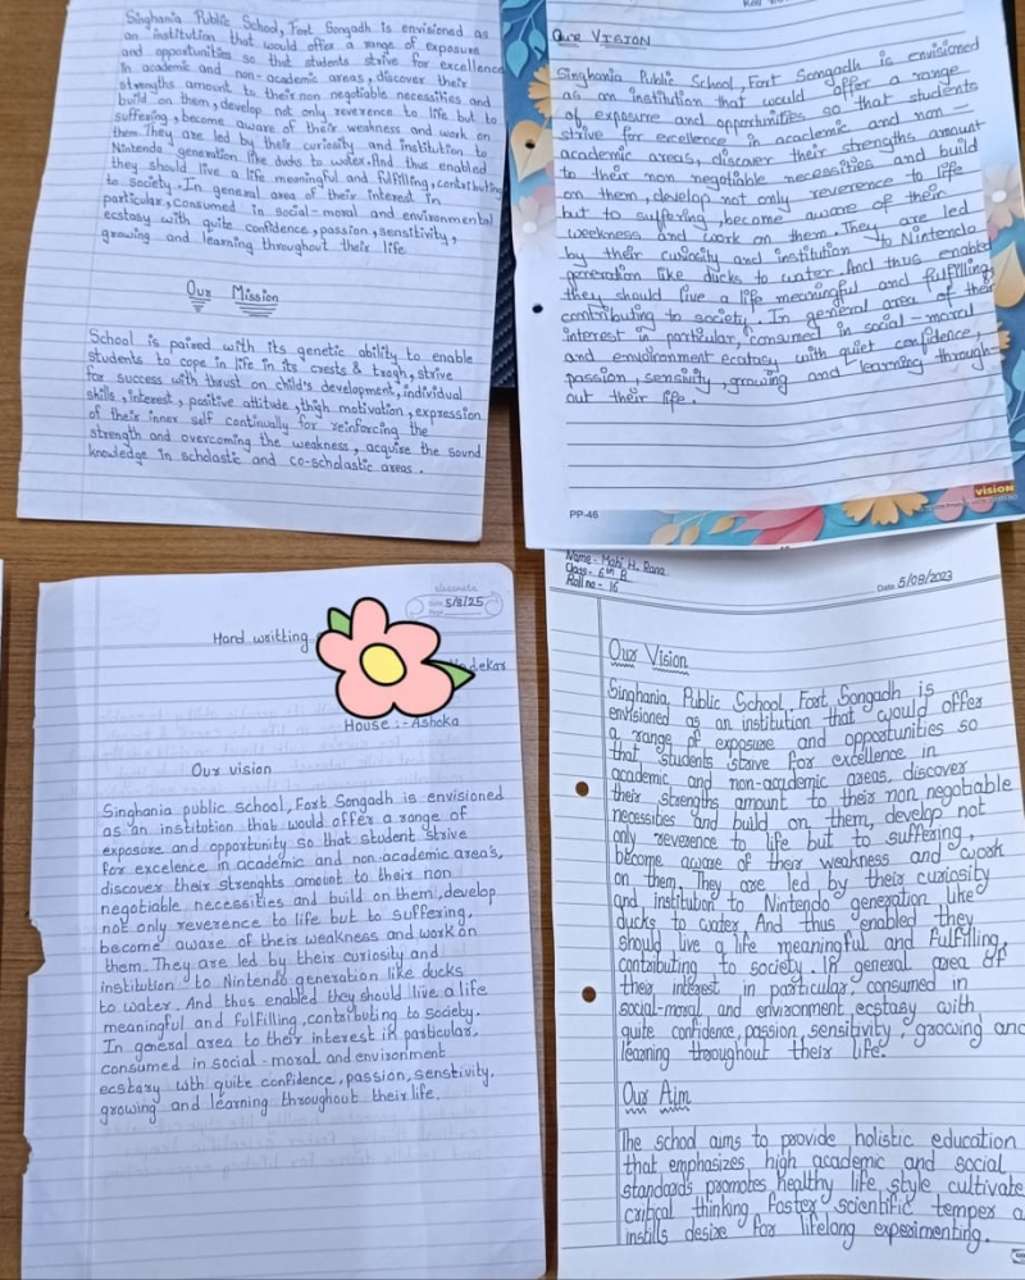 Singhania Public School, Fort Songadh is envisioned as
an institution that would offer a range of exposure
and opportunities so that students strive for excellence
in academic and non-academic areas, discover their
strengths amount to their non negotiable necessities and
build on them, develop not only reverence to life but to
suffering, become aware of their weakness and work on
them. They are led by their curiosity and institution to
Nintendo generation like ducks to water. And thus enabled
they should live a life meaningful and fulfilling, contributing
to society. In general area of their interest in
particular, consumed in social-moral and environmental
ecstasy with quite confidence, passion, sensitivity,
growing and learning throughout their life
Our Mission
School is paired with its genetic ability to enable
students to cope in life in its crests & trogh, strive
for success with thrust on child's development, individual
skills, interest, positive attitude, thigh motivation, expression
of their inner self continually for reinforcing the
strength and overcoming the weakness, acquire the sound
knowledge in scholastic and co-scholastic areas.
Our Vision
Singhania Public School, Fort Songadh is envisioned
as an institution that would offer a range
of exposure and opportunities so that students
strive for excellence in academic and non-
academic areas, discover their strengths amount
to their non negotiable necessities and build
on them, develop not only reverence to life
but to suffering, become aware of their
weekness and work on them. They are led
by their curiosity and institution to Nintendo
generation like ducks to water. And thus enabled
they should live a life meaningful and fulfilling,
contributing to society. In general area of their
interest in particular, consumed in social-moral
and environment ecatasy with quiet confidence,
passion, sensivity, growing and learning through-
out their life.
PP-46
vision
5/8/25
Hand writting
dekar
House :- Ashoka
Our vision
Singhania public school, Fort Songadh is envisioned
as an institution that would offer a range of
exposure and opportunity so that student strive
for excelence in academic and non-academic area's,
discover their strenghts amount to their non
negotiable necessities and build on them, develop
not only reverence to life but to suffering,
become aware of their weakness and work on
them. They are led by their curiosity and
institution to Nintendo generation like ducks
to water. And thus enabled they should live a life
meaningful and fulfilling, contributing to society.
In general area to their interest in particular,
consumed in social-moral and environment
ecstary with quite confidence, passion, senstivity,
growing and learning throughout their life.
Name - Mahi H. Rana
Class - 6th B
Roll no - 16
Date 5/08/2023
Our Vision
Singhania Public School, Fort Songadh is
envisioned as an institution that would offer
a range of exposure and opportunities so
that students strive for excellence in
academic and non-academic areas, discover
their strengths amount to their non negotiable
necessities and build on them, develop not
only reverence to life but to suffering,
become aware of their weakness and work
on them. They are led by their curiosity
and institution to Nintendo generation like
ducks to water And thus enabled they
should live a life meaningful and fulfilling,
contributing to society. In general area of
their interest in particular, consumed in
social-moral and environment ecstasy with
quite confidence, passion, sensitivity, growing and
learning throughout their life.
Our Aim
The school aims to provide holistic education
that emphasizes high academic and social
standards promotes healthy life style cultivate
critical thinking foster scientific temper a
instills desire for lifelong experimenting.